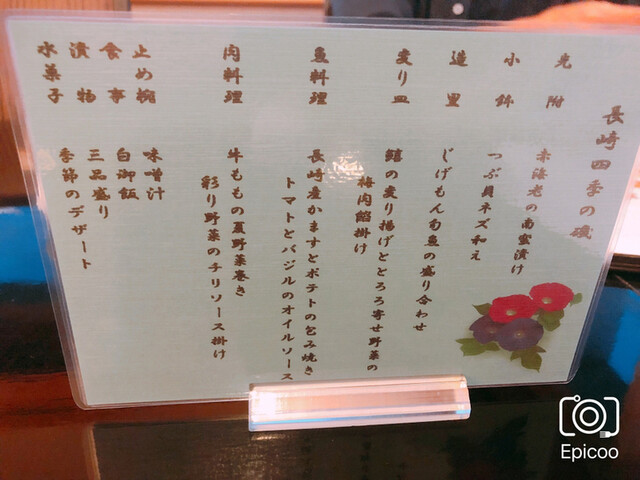 長崎四季の磯
先附 赤海老の南蛮漬け
小鉢 つぶ貝ネズ和え
造里 じげもん旬魚の盛り合わせ
変り皿 鱧の変り揚げととろろ寄せ野菜の
梅肉餡掛け
魚料理 長崎産かますとポテトの包み焼き
トマトとバジルのオイルソース
肉料理 牛ももの夏野菜巻き
彩り野菜のチリソース掛け
止め椀 味噌汁
食事 白御飯
漬物 三品盛り
水菓子 季節のデザート
Epicoo